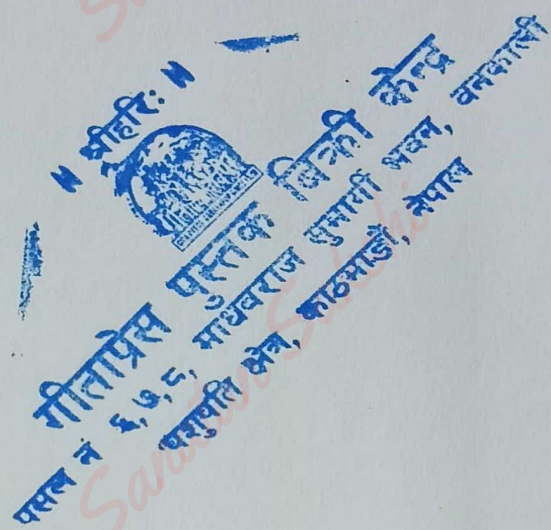 ॥ श्रीहरिः ॥
गीताप्रेस पुस्तक बिक्री केन्द्र
पसल नं ६,७,८, माधवराज सुमार्गी भवन, वनकाली
पशुपति क्षेत्र, काठमाडौं, नेपाल
Sanatan Sakshi